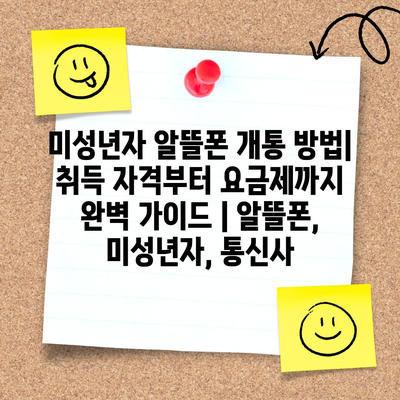 미성년자 알뜰폰 개통 방법|
취득 자격부터 요금제까지
완벽 가이드 | 알뜰폰,
미성년자, 통신사